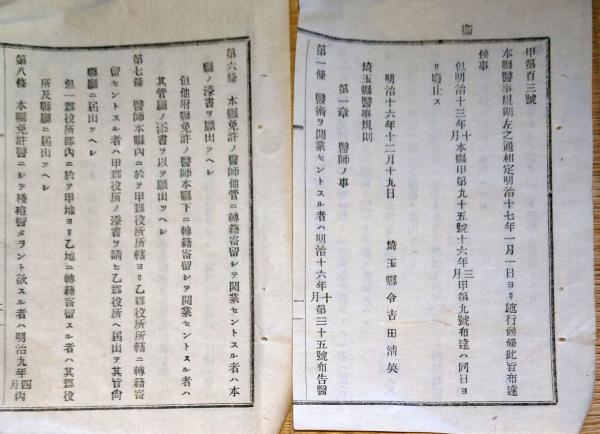 甲第百三號
本縣醫事規則左之通相定明治十七年一月一日ヨリ施行候條此旨布達
候事
但明治十三年十月本縣甲第九十五號十六年三月甲第九號布達ハ同日ヨ
リ廢止ス
明治十六年十二月十九日　埼玉縣令吉田淸英
埼玉縣醫事規則
第一章　醫師ノ事
第一條　醫術ヲ開業セントスル者ハ明治十六年十月第三十五號布告醫
第六條　本縣免許ノ醫師他管ニ轉籍寄留シテ開業セントスル者ハ本
縣ノ添書ヲ願出ツヘシ
但他府縣免許ノ醫師本縣下ニ轉籍寄留シテ開業セントスル者ハ
其管廳ノ添書ヲ以テ願出ツヘシ
第七條　醫師本縣內ニ於テ甲郡役所所轄ヨリ乙郡役所所轄ニ轉籍寄
留セントスル者ハ甲郡役所ノ添書ヲ請ヒ乙郡役所ヘ屆出テ其旨尙
縣廳ニ屆出ツヘシ
但一郡役所部內ニ於テ甲地ヨリ乙地ニ轉籍寄留スル者ハ其郡役
所及縣廳ニ屆出ツヘシ
第八條　本縣免許醫ニシテ種痘醫タラント欲スル者ハ明治九年四月內